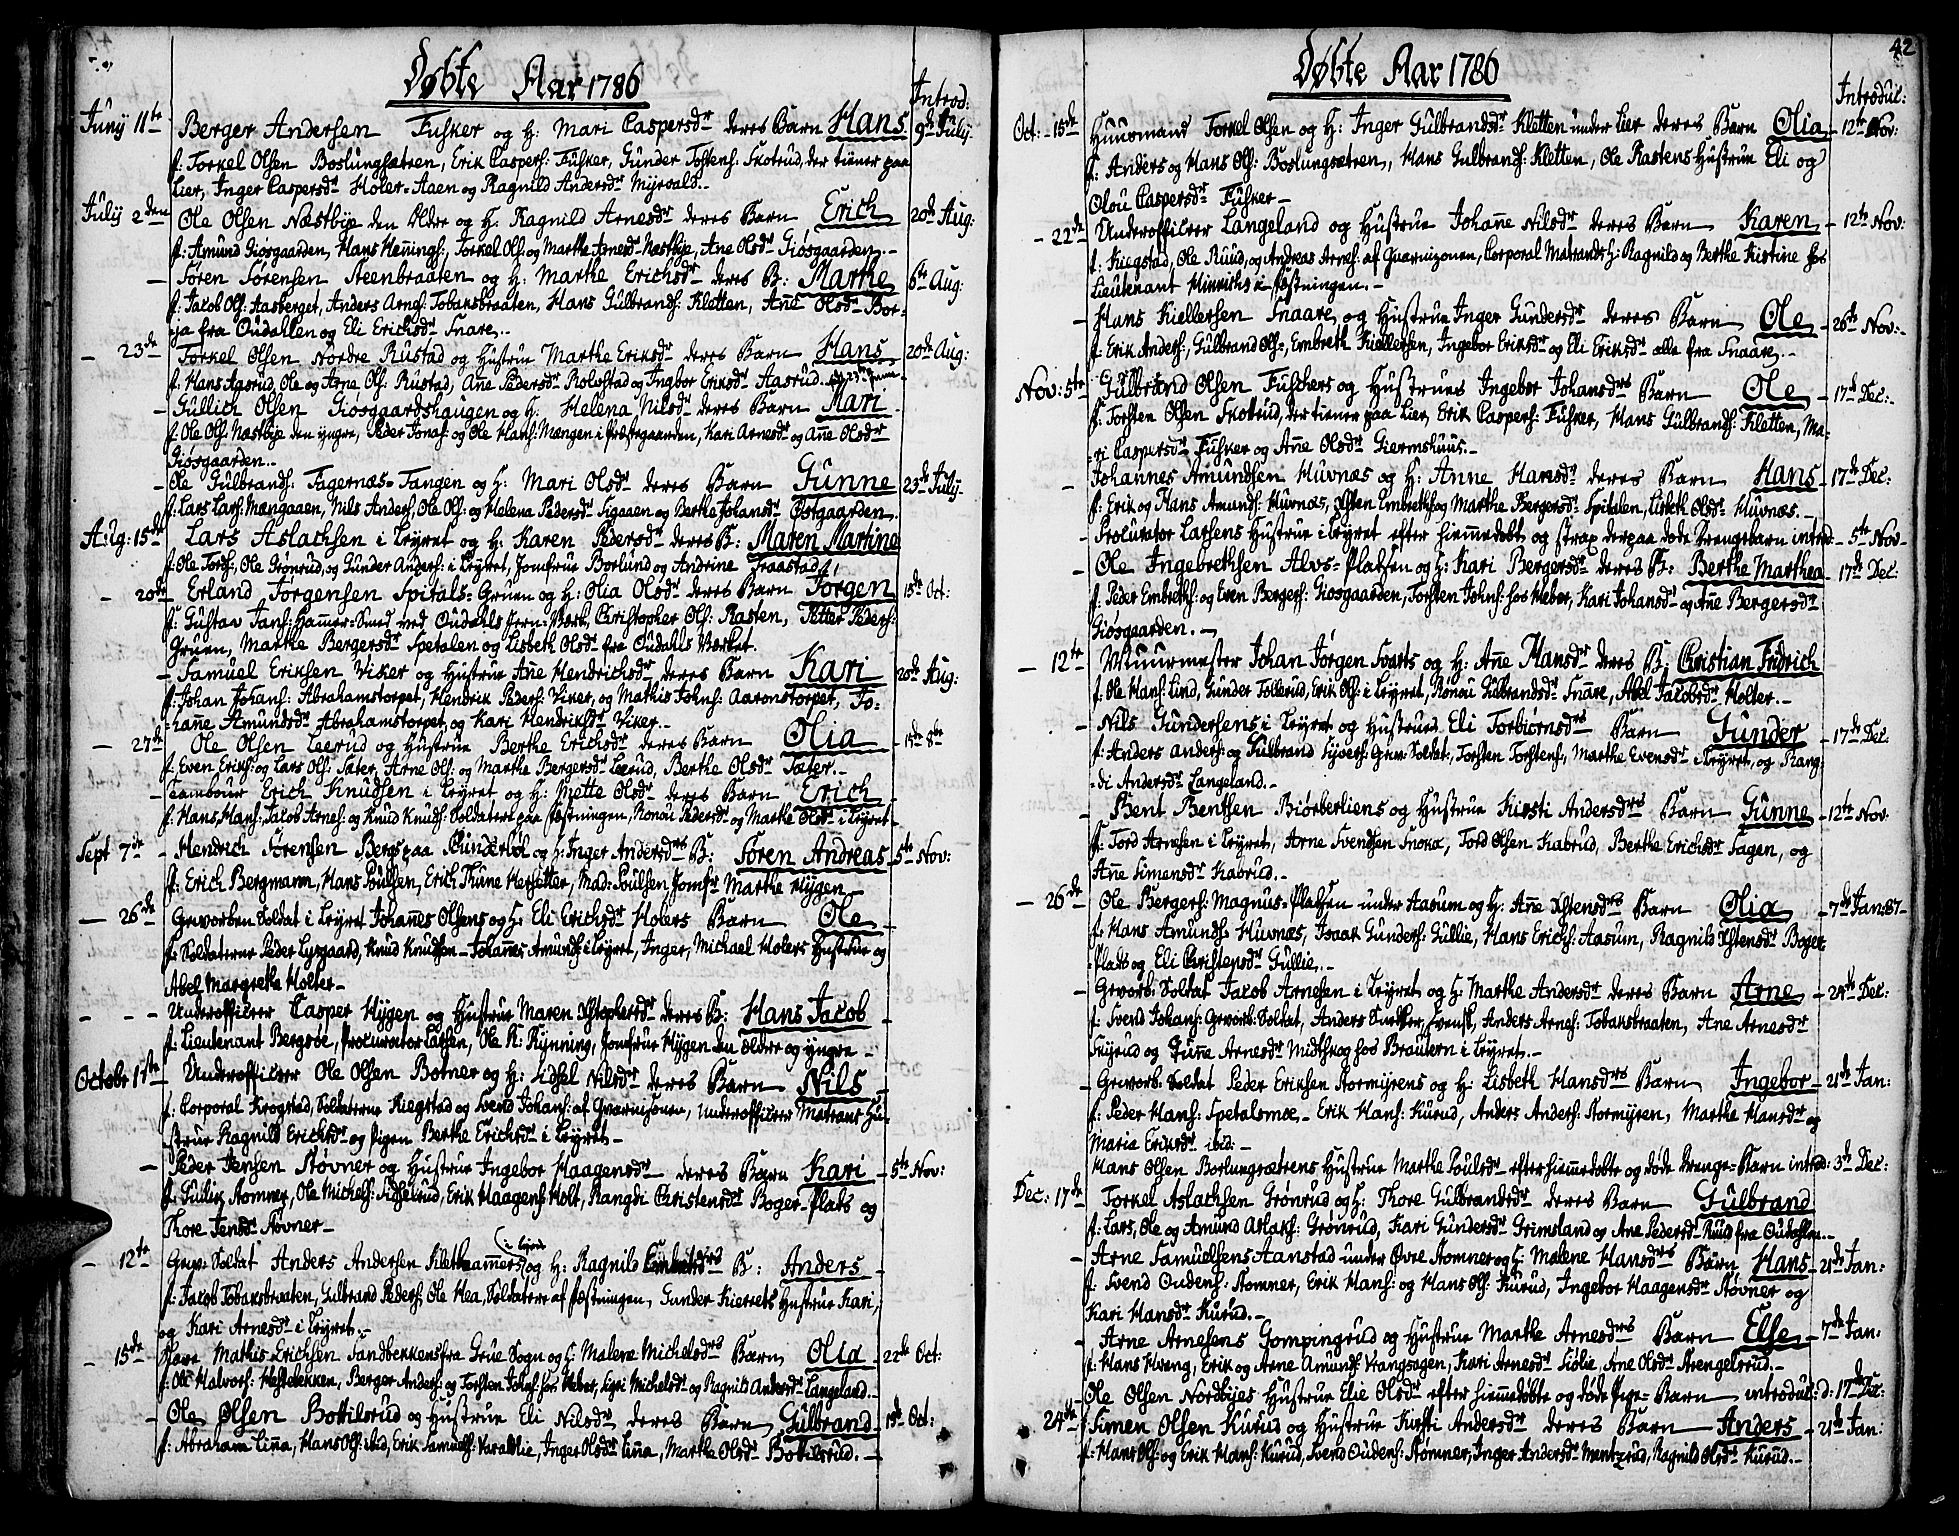 Døbte Aar 1786
Introd:
Juny 11te Berger Andersen Fusker og H: Mari Caspersdr deres Barn Hans 9de July
f: Torkel Olsen Boslungsætren, Erik Caspers: Fusker, Gunder Tostens: Skotrud, der tiener paa
Lier, Inger Caspersdr Holer-Aaen og Ragnild Andersdr Myrvald.
July 2den Ole Olsen Næstbye den Ældre og H: Ragnild Arnesdr deres Barn Erich 20de Aug:
f: Amund Giøsgaarden, Hans Hennings: Torkel Ols: og Marthe Arnesdr Næstbye, Ane Olsdr Giøsgaarden.
- Søren Sørensen Steenbraaten og H: Marthe Erichsdr deres B: Marthe 6te Aug:
f: Jacob Ols: Aasberget, Anders Arnes: Tobaksbraaten, Hans Gulbrands: Kletten, Ane Olsdr Bor-
ja fra Oudahlen og Eli Erichsdr Snare.
- 23de Torkel Olsen Nordre Rustad og Hustrue Marthe Eriksdr deres Barn Hans 20de Aug:
f: Hans Aasrud, Ole og Arne Ols: Rustad, Ane Pedersdr Rolvstad og Ingbor Eriksdr Aasrud.
- Gullich Olsen Giøsgaardshaugen og H: Helena Nilsdr deres Barn Mari
f: Ole Ols: Næstbye den yngre, Peder Jonas: og Ole Hans: Mængen i Præstegaarden, Kari Arnesdr og Ane Olsdr
Giøsgaarden.
Ole Gulbrands: Fagernæs-Tangen og H: Mari Olsdr deres Barn Gunne 23de July
f: Lars Lars: Mængaaen, Nils Anders, Ole Ols: og Helena Pedersdr Sigaaen og Berthe Johansdr Østgaarden.
Aug: 15de Lars Aslachsen i Leyret og H: Karen Pedersdr deres B: Maren Martine
f: Ole Tords:, Ole Grønrud, og Gunder Anders: i Leyret, Jomfrue Borlund og Andrine Fraastad,
- 20de Erland Jørgensen Spitals-Gruen og H: Olia Olsdr deres Barn Jørgen 15de Oct:
f: Gustav Jans: Hammer-Smed ved Oudahls Jern-Værk, Christopher Ols: Rasten, Petter Peders:
Gruen, Marthe Bergersdr Spetalen og Lisbeth Olsdr fra Oudahls Værket.
- Samuel Eriksen Viker og Hustrue Ane Hendrichsdr deres Barn Kari 20de Aug:
f: Johan Johans: Abrahamstorpet, Hendrik Peders: Viker, og Mathis Johns: Aaronstorpet, Jo-
hane Amundsdr Abrahamstorpet og Kari Hendriksdr Viker.
- 27de Ole Olsen Leerud og Hustrue Berthe Erichsdr deres Barn Olia 15de 8br
f: Even Eriks: og Lars Ols: Sæter, Arne Ols: og Marthe Bergersdr Leerud, Berthe Olsdr Sæter.
- Tambour Erich Knudsen i Leyret og H: Mette Olsdr deres Barn Erich
f: Hans Hans: Jacob Arnes: og Knud Knuds: Soldatere paa Fæstningen, Ronau Pedersdr og Marthe Olsdr i Leyret
Sept 7de Hendrich Sørensen Bergs paa og H: Inger Andersdrs B: Søren Andreas 5te Nov:
f: Erich Bergmann, Hans Poulsen, Erich Thune Hersetter, Mad: Poulsen, Jomfr Marthe Hygen
- 26de Gevorben Soldat i Leyret Johannes Olsens og H: Eli Erichsdr Holers Barn Ole
f: Soldaterne Peder Lysgaard, Knud Knudsen, Johannes Amunds: i Leyret, Inger, Michael Holers Hustrue og
Abel Margrethe Holter
- Underofficer Casper Hygen og Hustrue Maren Xstophersdr deres B: Hans Jacob
f: Lieutenant Bergsøe, Procurator Larsen, Ole K: Rynning, Jomfrue Hygen den ældre og yngre
Octobr 1ste Underofficer Ole Olsen Bomer og H: Sidsel Nilsdr deres Barn Nils
f: Corporal Krogstad, Soldaterne Kiegstad og Svend Johans: af Gvarnisonen, Underofficer Matrans Hu-
strue Ragnild Erichsdr og Pigen Berthe Erichsdr i Leyret
- Peder Jensen Støvner og Hustrue Ingebor Haagensdr deres Barn Kari 5te Nov:
f: Gulik Stomner, Ole Michels: Sidselrud, Erik Haagens: Holt, Rangdi Christensdr Boger-Plads og
Thore Jensdr Støvner
- 12te Grev: Soldat Anders Andersen Klethammer i Leyret og H: Ragnild B: Anders
f: Jacob Tobaksbraaten, Gulbrand Peders:, Ole Hea, Soldatere af Fæstningen, Gunder Kierrets Hustrue Kari,
og Kari Arnesdr i Leyret.
- 15de Mathis Erichsen Sandbekkens fra Grue Sogn og H: Malene Michelsdrs Barn Olia 22de Oct:
f: Ole Halvors: Hestebekken, Berger Anders: og Torsten Johns: hos Heber, Siri Michelsdr og Ragnild Andersdr Langeland.
- Ole Olsen Bottilsrud og Hustrue Eli Nilsdr deres Barn Gulbrand 15de Oct:
f: Abraham Linna, Hans Ols: ibid, Erik Samuels: Varaldlie, Inger Olsdr Linna, Marthe Olsdr Bottilsrud.
42
Døbte Aar 1786
Introduc:
Oct: 15de Huusmand Torkel Olsen og H: Inger Gulbrandsdr Kletten under Lier deres Barn Olia 12te Nov:
f: Anders og Hans Ols: Boslungsætren, Hans Gulbrands: Kletten, Ole Rastens Hustrue Eli og
Olou Caspersdr Fusker
- 22de Underofficer Langeland og Hustrue Johanne Nilsdr deres Barn Karen 12te Nov:
f: Kiegstad, Ole Ruud, og Andreas Arnes: af Guarnizonen, Corporal Matrands H: Ragnild og Berthe Kistine hos
Lieutenant Hinrichs i Fæstningen.
- Hans Kiellersen Snaare og Hustrue Inger Gundersdr deres Barn Ole 26de Nov:
f: Erik Anders:, Gulbrand Ols:, Embreth Kiellersen, Ingebor Eriksdr og Eli Eriksdr alle fra Snaare.
Nov: 5te Gulbrand Olsen Fuskers og Hustrues Ingebor Johansdrs Barn Ole 17de Dec:
f: Torsten Olsen Skottrud, der tiener paa Lier, Erik Caspers: Fusker, Hans Gulbrands: Kletten, Ma-
ri Caspersdr Fusker og Ane Olsdr Giermshuus.
- Johannes Amundsen Huvnæs og H: Anne Hansdr deres Barn Hans 17de Dec:
f: Erik og Hans Amunds: Huvnæs, Østen Embreths: og Marthe Bergersdr Spitalen, Lisbeth Olsdr Huvnæs.
- Procurator Larsens Hustrue i Leyret efter hiemmedøbt og strax derpaa døde Drengebarn introd: 5te Nov
- Ole Ingebrethsen Alvs-Pladsen og H: Kari Bergersdr deres B: Berthe Marthea 17de Dec:
f: Peder Embreths: og Even Bergers: Giøsgaarden, Torsten Johns: hos Heber, Kari Johansdr og Ane Bergersdr
Giøsgaarden.
- 12te Muurmester Johan Jørgen Svarts og H: Ane Hansdr deres B: Christian Fridrich
f: Ole Hans: Lind, Gunder Tollerud, Erik Ols: i Leyret, Ronau Gulbrandsdr Snare, Abel Jacobsdr Holter.
- Nils Gundersens i Leyret og Hustrues Eli Torbiørnsdrs Barn Gunder 17de Dec:
f: Anders Anders: og Gulbrand Syvers: Grev: Soldat, Torsten Torstens, Marthe Evensdr i Leyret, og Rang-
di Andersdr Langeland.
Bent Bentsen Biørberliens og Hustrue Kirsti Andersdrs Barn Gunne 12te Nov:
f: Tord Arnesen i Leyret, Arne Svendsen Snoka, Tord Olsen Kabrud, Berthe Erichsdr Sagen, og
Ane Simensdr Kabrud.
- 26de Ole Bergers: Magnus-Pladsen under Aasum og H: Ane Østensdrs Barn Olia 7de Jan: 87
f: Hans Amunds: Huvnæs, Isaak Gunders: Gullie, Hans Erichs: Aasum, Ragnild Østensdr Boger-
Plads og Eli Christensdr Gullie.
- Gevorb: Soldat Jacob Arnesen i Leyret og H: Marthe Andersdr deres Barn Arne 24de Dec:
f: Svend Johans: Gevorb: Soldat, Anders Snekker, Svensk, Anders Arnes: Tobaksbraaten, Ane Arnesdr
Skyrud og Gune Arnesdr Midtskog hos Brautern i Leyret.
- Gevorb: Soldat Peder Eriksen Stormyrens og H: Lisbeth Hansdrs Barn Ingebor 21de Jan:
f: Peder Hans: Spetalsmoe, Erik Hans: Kurud, Anders Anders: Stormyren, Marthe Hansdr og
Maria Eriksdr ibid:
Hans Olsen Boslungsætrens Hustrue Marthe Poulsdr efter hiemmedøbte og døde Drenge-Barn introd: 3de Dec:
Dec: 17de Torkel Aslachsen Grønrud og H: Thore Gulbrandsdr deres Barn Gulbrand
f: Lars, Ole og Amund Aslaks: Grønrud, Kari Gundersdr Grimsland og Ane Pedersdr Ruud fra Oudahlen.
- Arne Samuelsens Aanstad under Øvre Stomner og H: Malene Hansdrs Barn Hans 21de Jan:
f: Svend Oudens: Stomner, Erik Hans: og Hans Ols: Kurud, Ingebor Haagensdr Støvner og
Kari Hansdr Kurud.
- Arne Arnesens Gompingrud og Hustrue Marthe Arnesdrs Barn Else 7de Jan:
f: Hans Hvæng, Erik og Arne Amunds: Vrangsagen, Kari Arnesdr Siølie, Ane Olsdr Strengelsrud.
Ole Olsen Nordbyes Hustrue Elie Olsdr efter hiemmedøbte og døde Pige-Barn introduc: d: 17de Dec:
24de Simen Olsen Kurud og Hustrue Kirsti Andersdr deres Barn Anders 21de Jan:
f: Hans Ols: og Erik Hans: Kurud, Svend Oudens: Stomner, Inger Andersdr Mentzrud, Ragnild Olsdr Kurud.